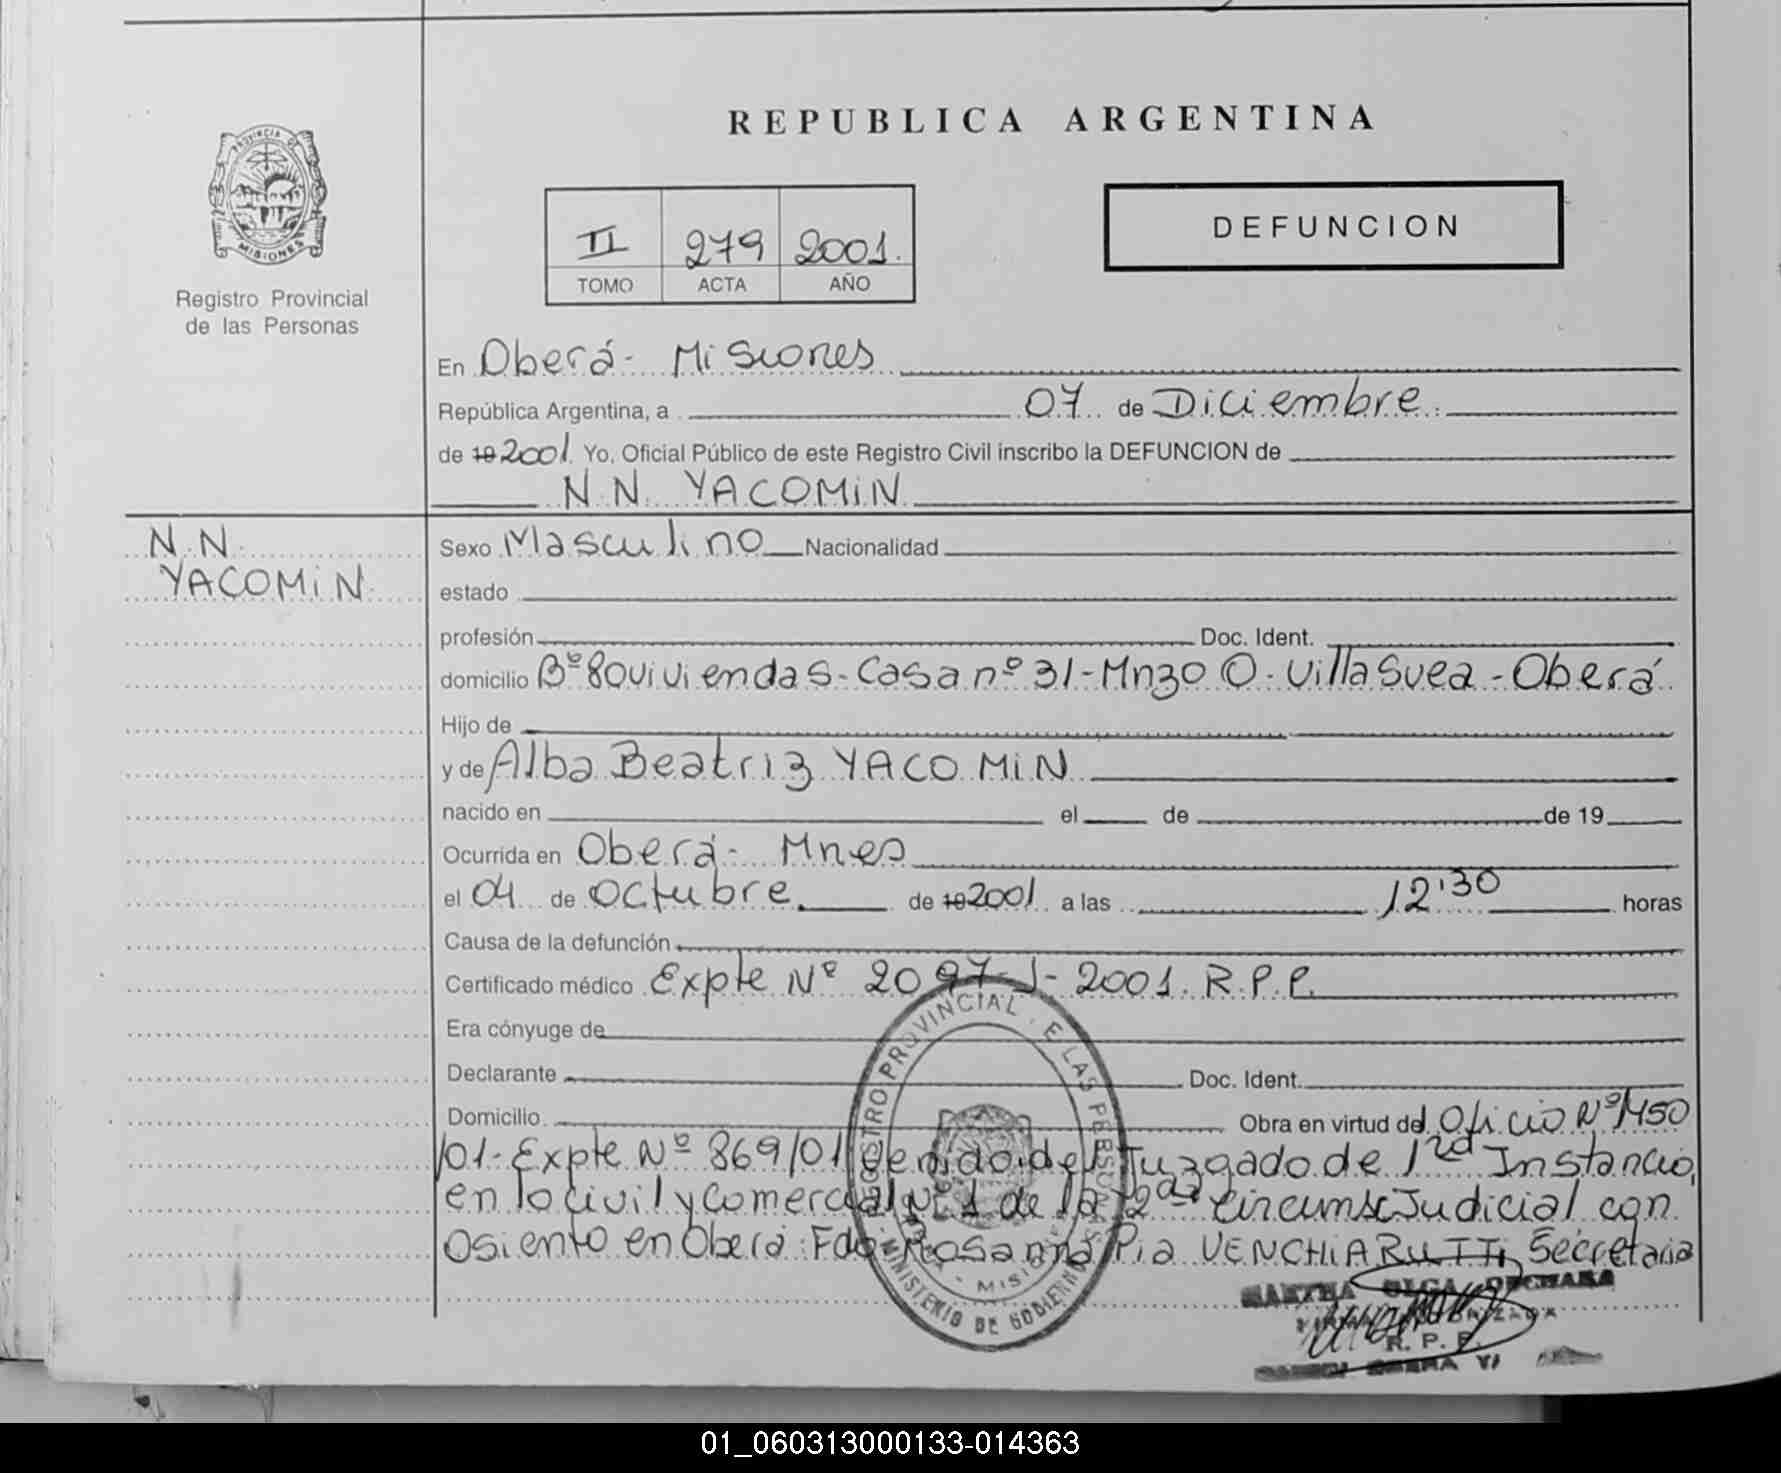 REPUBLICA ARGENTINA
PROVINCIA DE MISIONES
Registro Provincial
de las Personas
II 279 2001.
TOMO ACTA AÑO
DEFUNCION
En Oberá - Misiones
República Argentina, a 07 de Diciembre
de 19 2001. Yo, Oficial Público de este Registro Civil inscribo la DEFUNCION de
N.N. YACOMIN
N.N.
YACOMIN
Sexo Masculino Nacionalidad
estado
profesión Doc. Ident.
domicilio Bº 80 viviendas - Casa nº 31 - Mnzo O - Villa Svea - Oberá
Hijo de
y de Alba Beatriz YACOMIN
nacido en el de de 19
Ocurrida en Oberá - Mnes
el 04 de Octubre. de 19 2001 a las 12'30 horas
Causa de la defunción
Certificado médico Expte Nº 2097-J-2001. R.P.P.
Era cónyuge de
Declarante Doc. Ident.
Domicilio Obra en virtud del Oficio Nº 1450
/01 - Expte Nº 869/01 venido del Juzgado de 1ra Instancia
en lo Civil y Comercial Nº 1 de la 2da Circunsc Judicial con
asiento en Oberá. Fdo Rosanna Pia VENCHIARUTTI, Secretaria
REGISTRO PROVINCIAL DE LAS PERSONAS
MINISTERIO DE GOBIERNO
MARTHA OLGA
FIRMA AUTORIZADA
R. P. P.
01_060313000133-014363